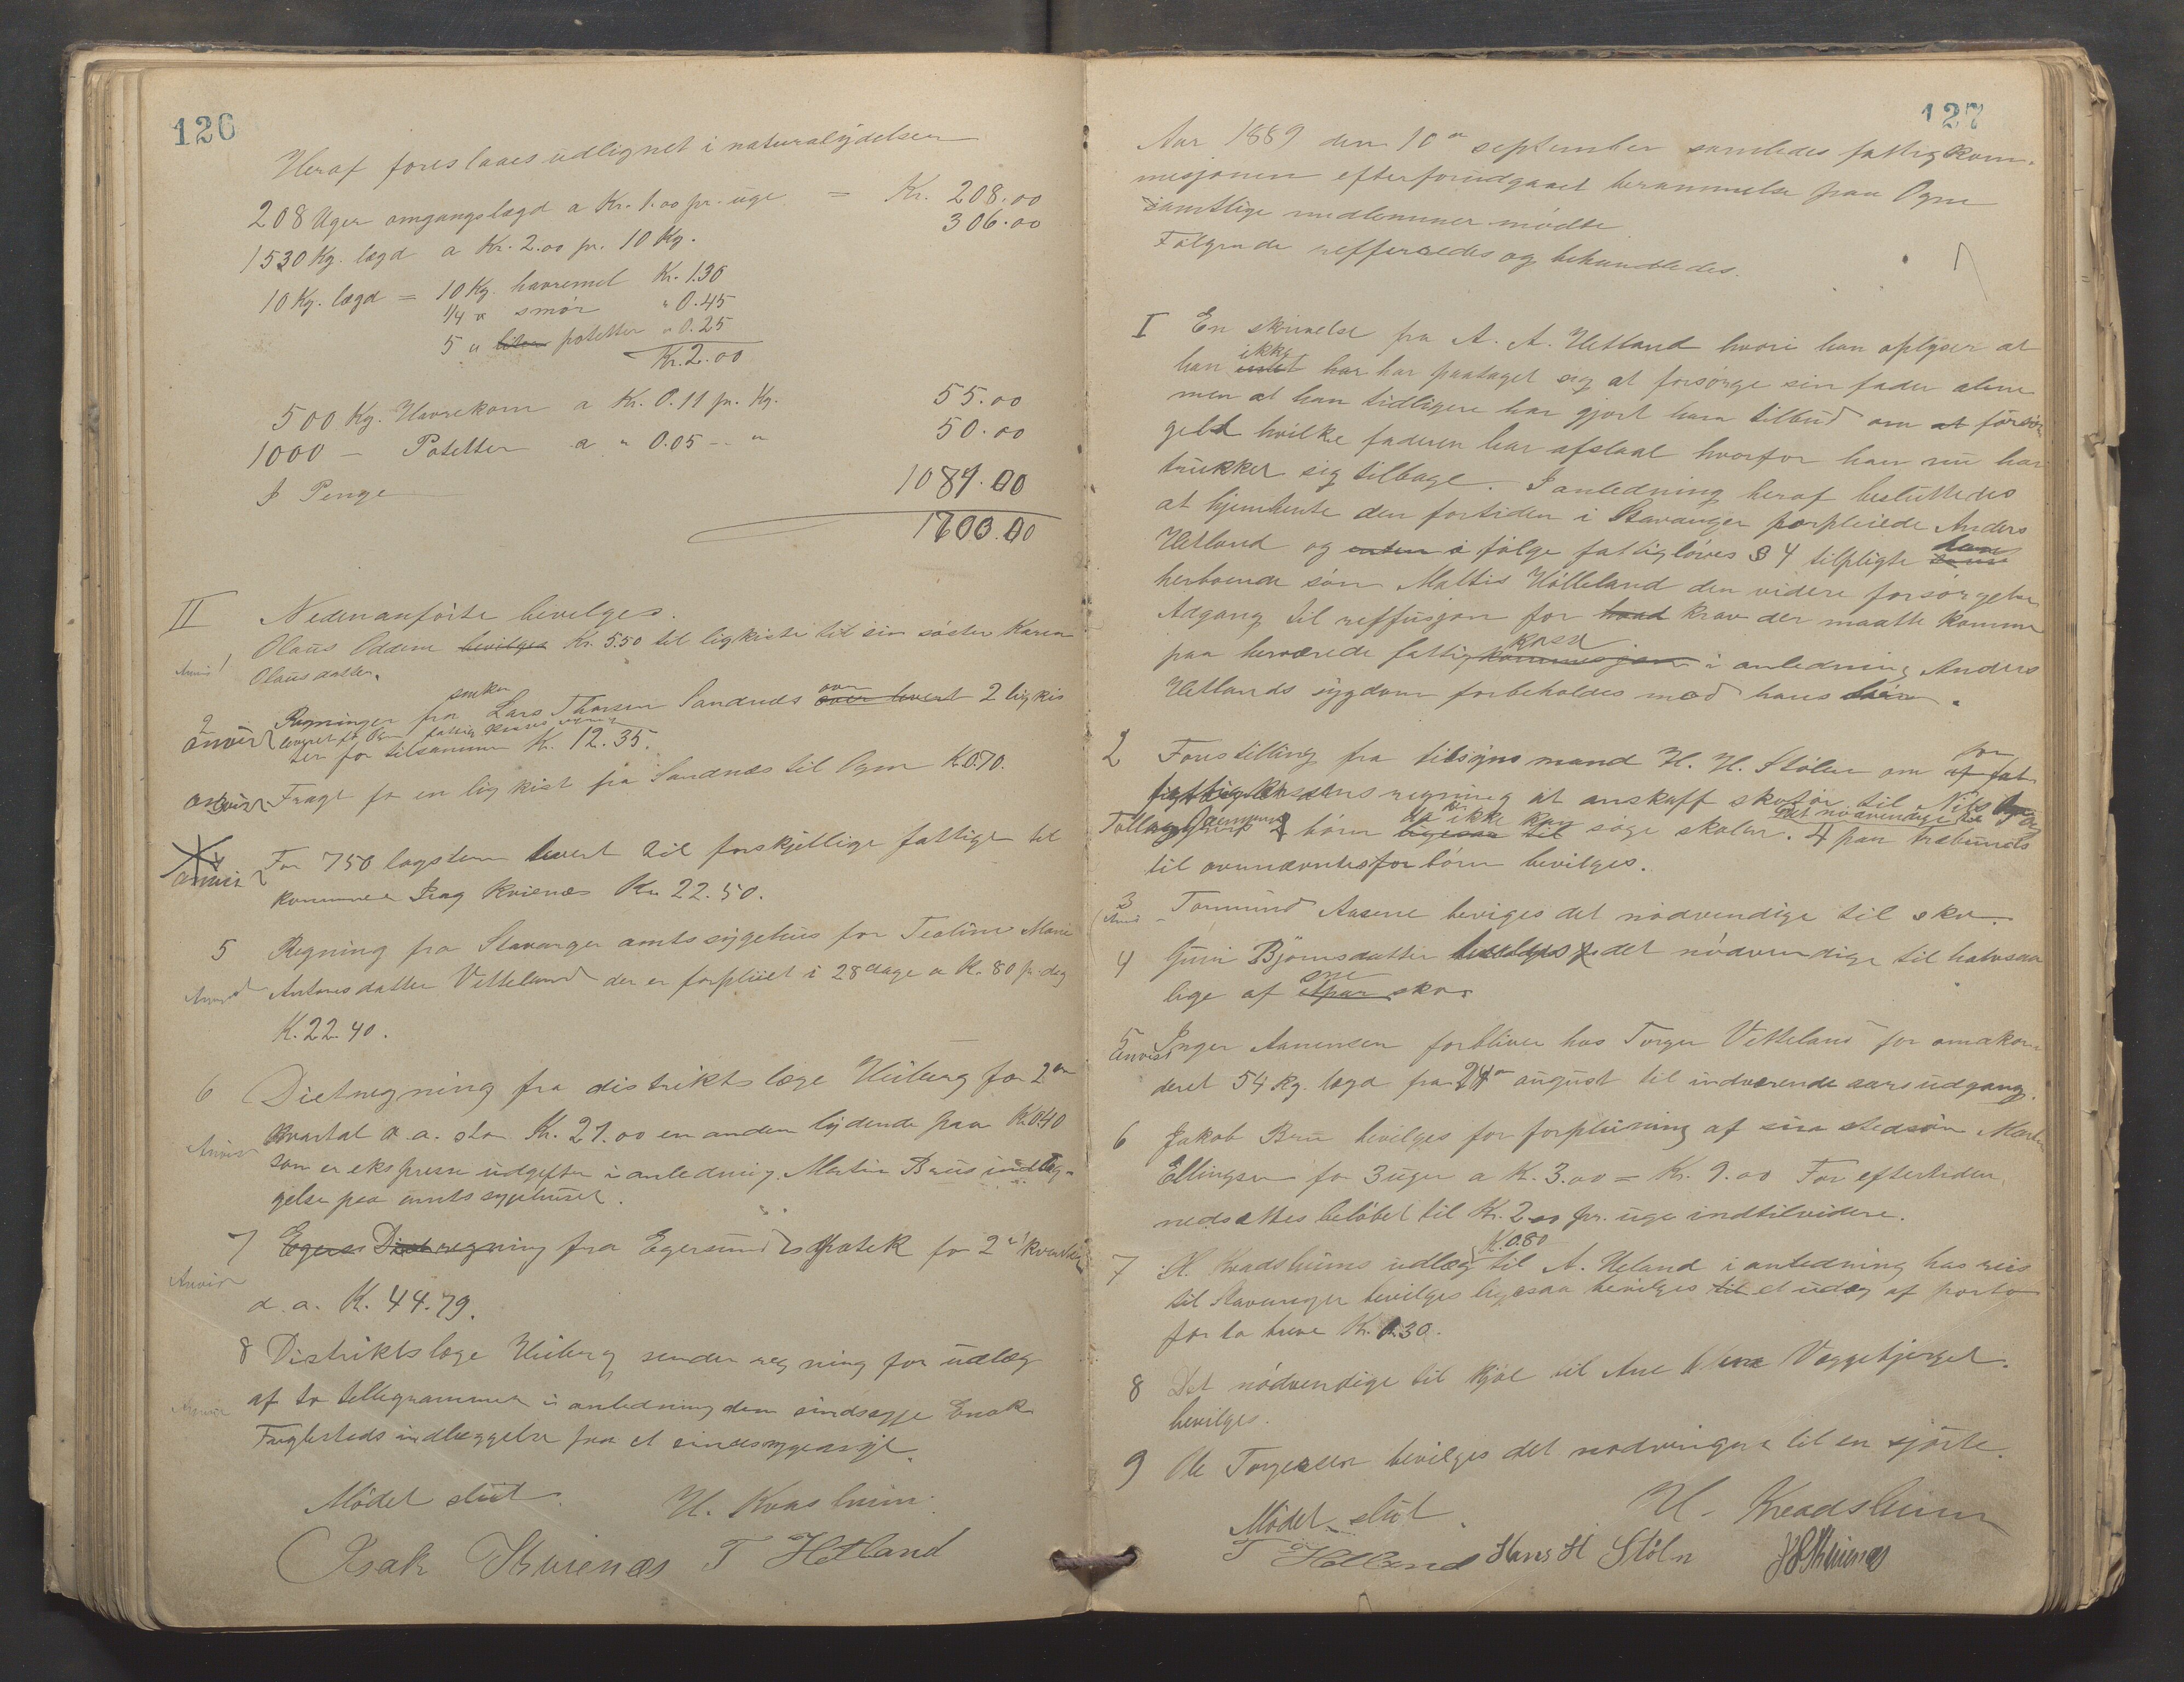 126
Heraf foreslaaes udlignet i naturalydelser
208 Uger omgangslægd a Kr. 1.00 pr. uge = Kr. 208.00
1530 Kg. lægd a Kr. 2.00 pr. 10 Kg. 306.00
10 Kg. lægd = 10 Kg. havremel Kr. 1.30
1/4 " smör " 0.45
5 " liter potetter " 0.25
Kr. 2.00
500 Kg. Havrekorn a Kr. 0.11 pr. Kg. 55.00
1000 — Potetter a " 0.05 - " 50.00
I Penge 1081.00
1700.00
II Nedenanförte bevilges.
1 Olaus Oddene bevilges Kr. 5.50 til ligkiste til sin söster Karen
Anvist Olausdatter.
snker
2 Regninger fra Lars Thorsen Sandnæs over levert 2 ligkis
anvist leveret for Ogne fattigkasses regning
ter for tilsammen Kr. 12.35.
anvist Fragt for en ligkist fra Sandnæs til Ogne K. 0.70.
anvist For 750 lagsten levert til forskjellige fattige til
kommunen Isag Kvienæs Kr. 22.50.
5 Regning fra Stavanger amtssygehus for Teoline Marie
Anvist Antonesdatter Vetteland der er forpleiet i 28 dage a K. 80 pr. dag
K. 22.40.
6 Dietregning fra distriktslæge Uüburg for 2den
Anvist kvartal d. a. stor Kr. 27.00 en anden lydende paa Kr. 0.40
som er ekspresse udgifter i anledning Martin Brues indlæg-
gelse paa amtssygehuset.
7 Egers Diet regning fra Egersunds Apotek for 2det kvartal
Anvist d. a. K. 44.79.
8 Distriktslæge Uüburg sender regning for udlæg
Anvist af to tellegrammer i anledning den sindssyge Enok
Fuglesteds indlæggelse paa et sindssygeasyl.
Mödet slut. H. Kvasheim.
Isak Kvienæs T Hetland
127
Aar 1889 den 10de september samledes fattigkom-
mesjonen efter forudgaaet berammelse paa Ogne
samtlige medlemmer mödte.
Fölgende refferedes og behandledes.
I En skrivelse fra A. A. Hetland hvori han oplyser at
ikke
han intet har har paataget sig at forsörge sin fader alene
men at han tidligere har gjort ham tilbud om at forsör
gelst hvilke faderen har afslaat hvorfor han nu har
trukket sig tilbage. I anledning heraf besluttedes
at hjemhente den fortiden i Stavanger forpleiede Anders
Hetland og enten i fölge fattiglöves § 4 tilpligte hans
herboende sön Mattis Hölleland den videre forsörgelse
Adgang til reffusjon for hvad krav der maatte komme
kasse
paa herværede fattigkommesjon i anledning Anders
Hetlands sygdom forbeholdes mod hans
2 Forestilling fra tilsynsmand H. H. Stölen om for
fattigkassens regning at anskaff skotöi til Nils
börn ligesaa til da de ikke kan söge skolen. 4 par træbunds
til ovennævntes for börn bevilges.
3 Anvist Tormund Aasene beviges det nödvendige til sko.
4 Guri Björnsdatter bevilges det nödvendige til halvsaa
lige af et par sko.
5 Anvist Inger Aanensen forbliver hos Torger Vetteland for omakor
deret 54 Kg. lægd fra 24de august til indværende aars udgang.
6 Jakob Bru bevilges for forpleining af sin stedsön Martin
Ellingsen for 3 uger a K. 3.00 = Kr. 9.00 For eftertiden
nedsættes belöbet til Kr. 2.00 pr. uge indtilvidere.
K. 0.80
7 H. Kvadsheims udlæg til A. Heland i anledning has reis
til Stavanger bevilges ligesaa bevilges til et udæg af porto
for to breve Kr. 0.30.
8 Det nödvendige til kjol til Ane Væggebjerget
bevilges.
9 Ole Torgersen bevilges det nödvendige til en sjörte.
Mödet slut. H. Kvadsheim
T Hetland Hans H Stöln